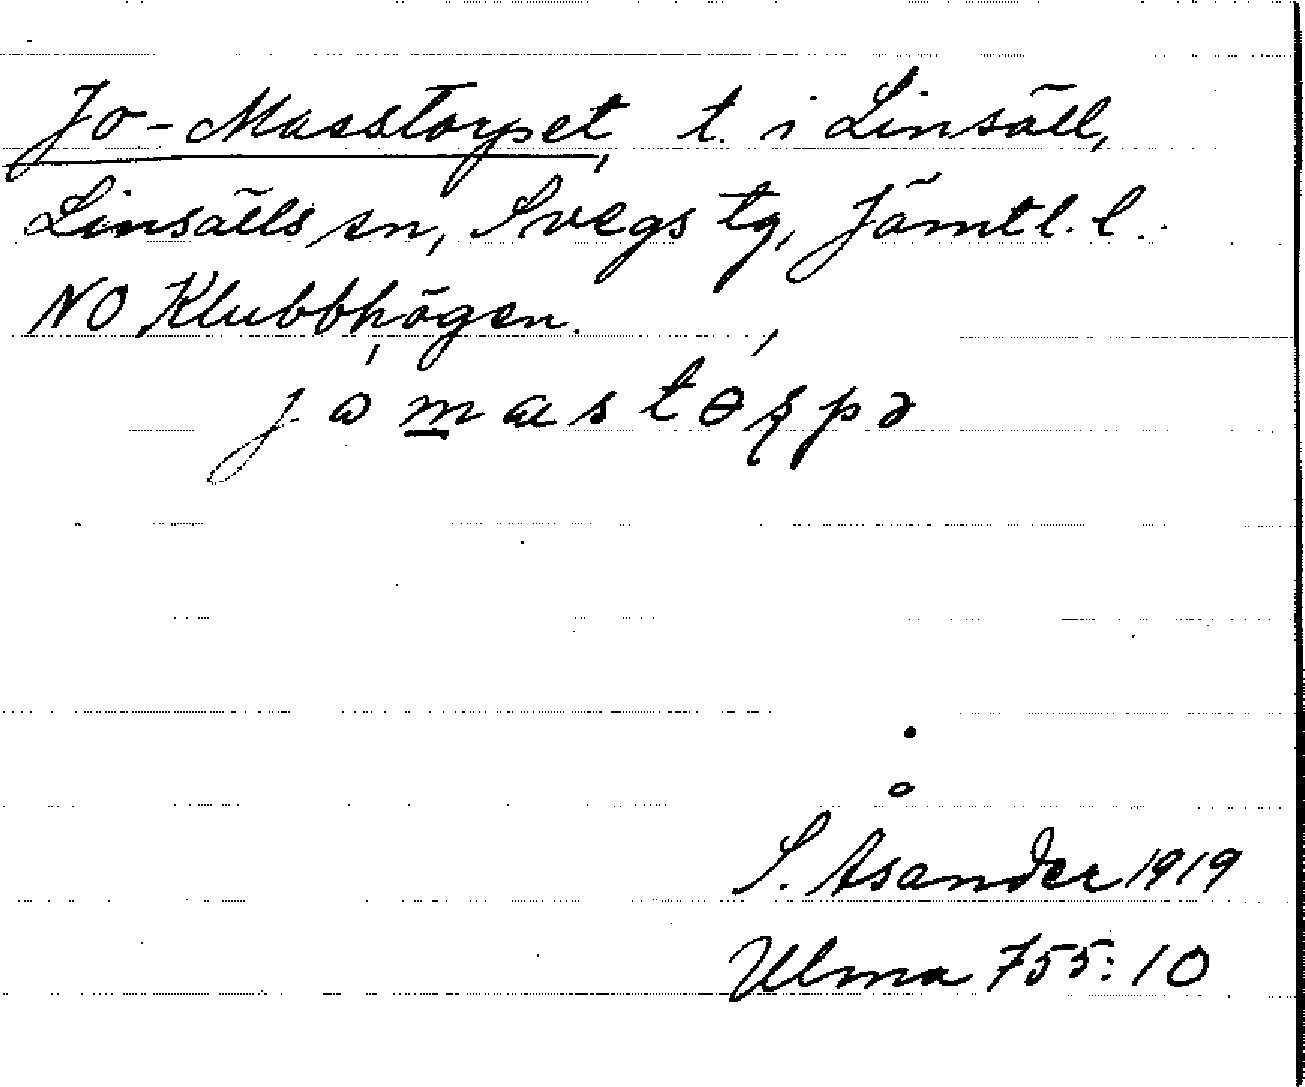 Jo-Masstorpet, t. i Linsäll,
Linsälls sn, Svegs tg, Jämtl. l.
NO Klubbhögen.
S. Åsander 1919
Ulma 755:10